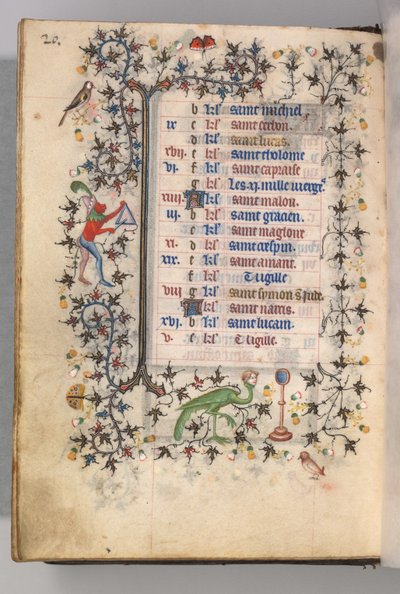 20.
b kl' saint michiel
ix c kl' saint cerbon.
d kl' saint lucas.
xvij. e kl' saint tholome
vi. f kl' saint capraise
g kl' Les .xi. mille vierges
xiiij A kl' saint malon.
iij. b kl' saint gracien.
c kl' saint magloire
xi. d kl' saint crespin.
xix. e kl' saint amant.
f kl' Vigille
viij g kl' saint symon s. jude.
A kl' saint narcis.
xvj. b kl' saint lucain.
v. c kl' Vigille.